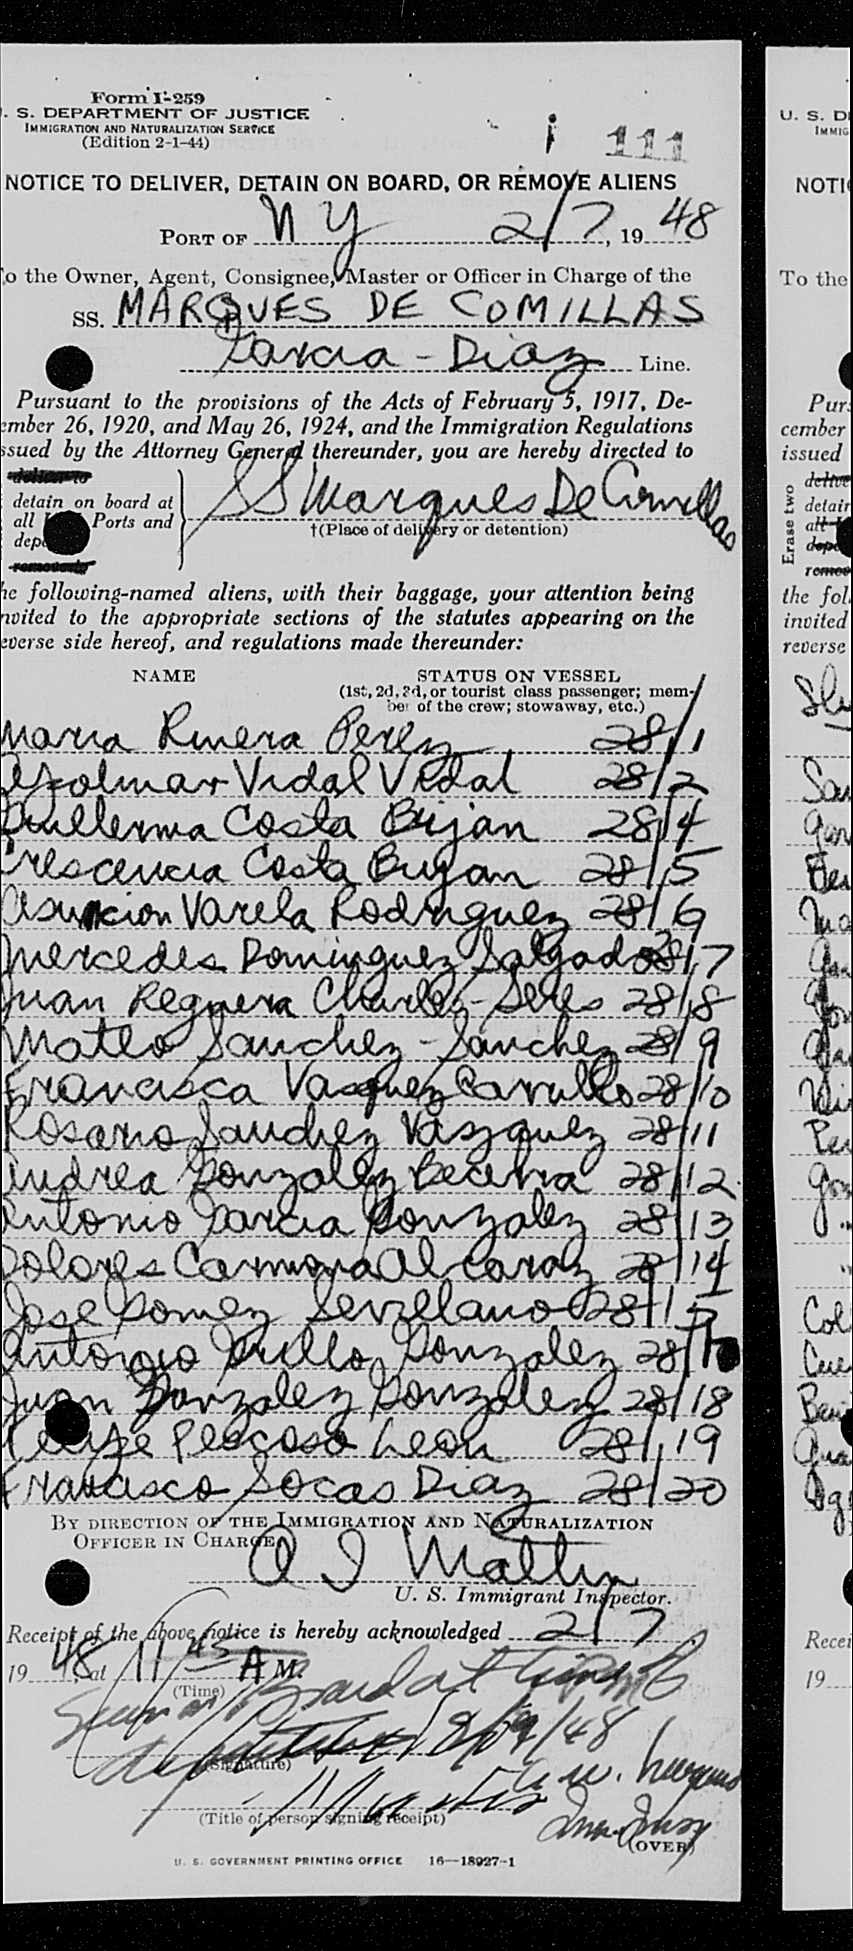 Form I-259
U. S. DEPARTMENT OF JUSTICE
IMMIGRATION AND NATURALIZATION SERVICE
(Edition 2-1-44)
i 111
NOTICE TO DELIVER, DETAIN ON BOARD, OR REMOVE ALIENS
PORT OF N Y 2/7, 1948
To the Owner, Agent, Consignee, Master or Officer in Charge of the
SS. MARQUES DE COMILLAS
Garcia - Diaz Line.
Pursuant to the provisions of the Acts of February 5, 1917, De-
cember 26, 1920, and May 26, 1924, and the Immigration Regulations
issued by the Attorney General thereunder, you are hereby directed to
deliver to
detain on board at
all Ports and
removed
SS Marques De Comillas
†(Place of delivery or detention)
the following-named aliens, with their baggage, your attention being
invited to the appropriate sections of the statutes appearing on the
reverse side hereof, and regulations made thereunder:
NAME STATUS ON VESSEL
(1st, 2d, 3d, or tourist class passenger; mem-
ber of the crew; stowaway, etc.)
Maria Rivera Perez 28/1
Vidal Vidal 28/2
Guillerma Costa Bujan 28/4
Crescencia Costa Bujan 28/5
Asuncion Varela Rodriguez 28/6
Mercedes Dominguez Salgado 28/7
Juan Reguera 28/8
Mateo Sanchez - Sanchez 28/9
Francisca Vasquez Carrillo 28/10
Rosario Sanchez Vazquez 28/11
Andrea Gonzalez Becerra 28/12
Antonio Garcia Gonzalez 28/13
Dolores Carmona Alcaraz 28/14
Jose Gomez Sevellano 28/15
Antonio Gonzalez 28/
Juan Gonzalez Gonzalez 28/18
Felipe Leon 28/19
Francisco Socas Diaz 28/20
BY DIRECTION OF THE IMMIGRATION AND NATURALIZATION
OFFICER IN CHARGE
U. S. Immigrant Inspector.
Receipt of the above notice is hereby acknowledged 2/7
1948, at 11 45 A M.
(Time)
/48
(Signature)
(Title of person signing receipt)
(OVER)
U. S. GOVERNMENT PRINTING OFFICE 16—18927-1
U. S. D
IMMIG
NOTI
To the
Purs
cember
issued
Erase two
delive
detain
all
depo
remov
the fol
invited
reverse
Recei
19